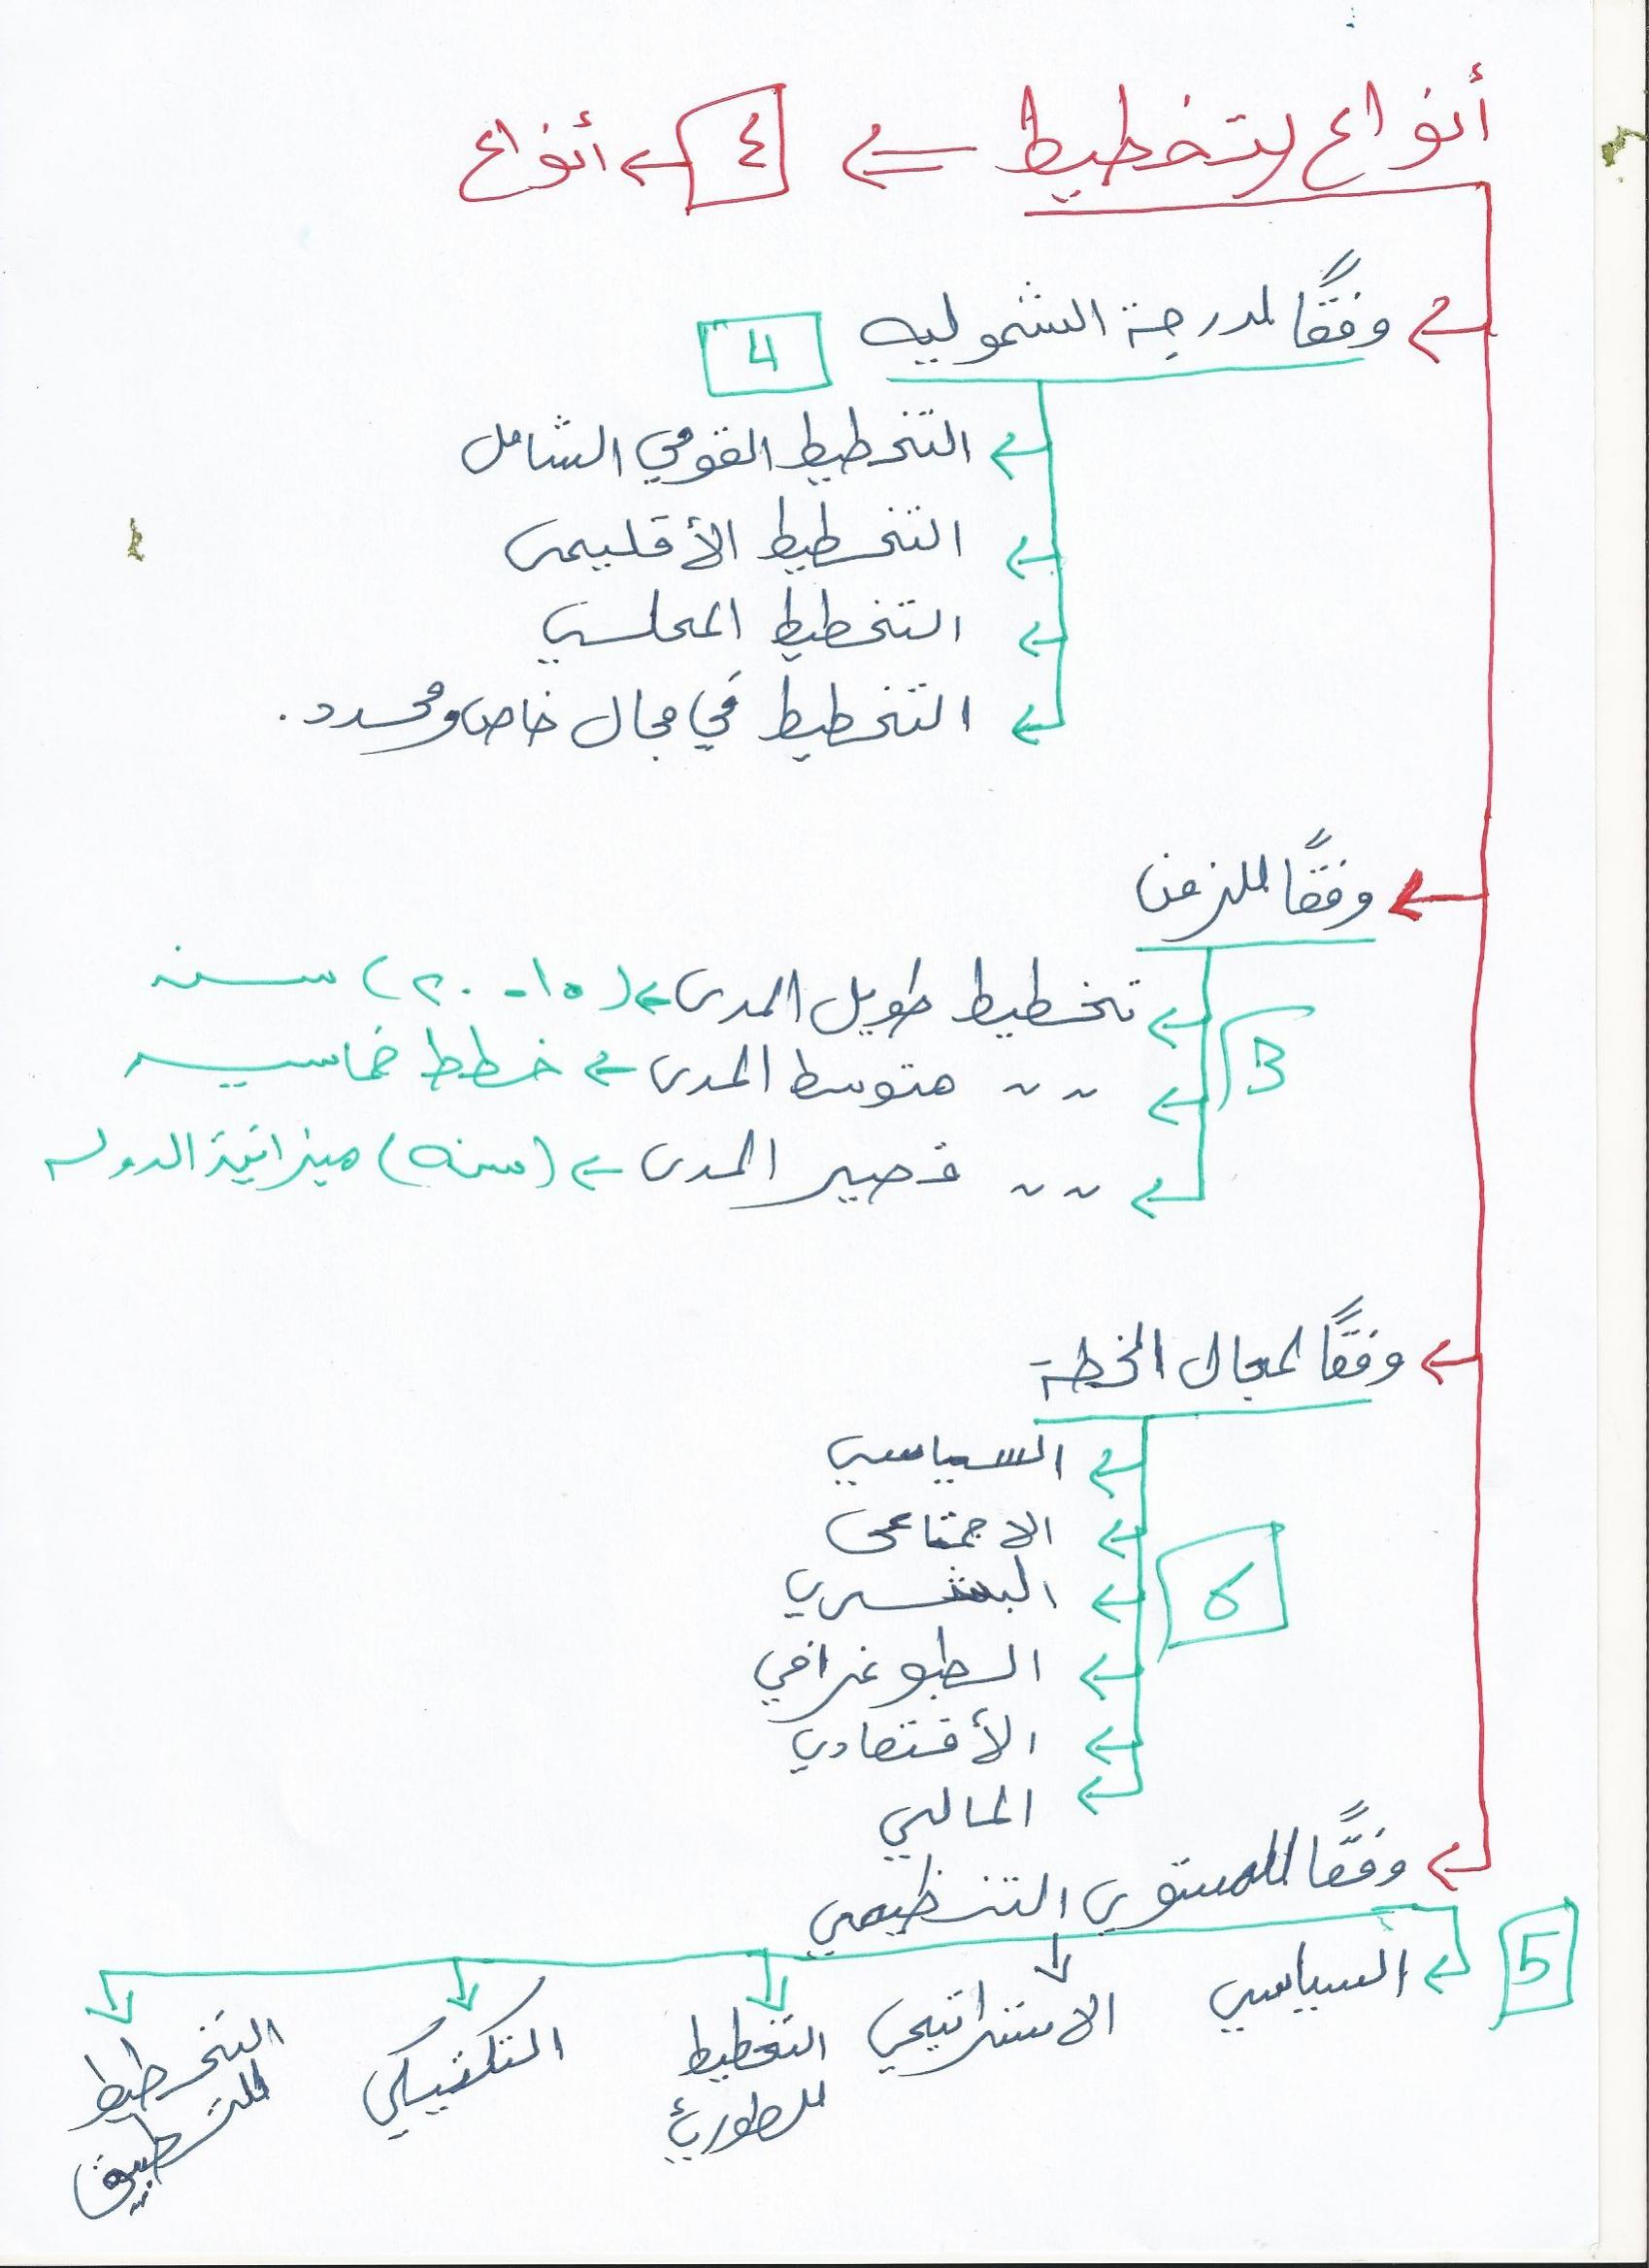 أنواع التخطيط ⇐ ٤ ← أنواع
← وفقًا لدرجة الشموليه 4
← التخطيط القومي الشامل
← التخطيط الأقليمى
← التخطيط المحلسي
← التخطيط في مجال خاص ومحدد.
← وفقًا للزمن
3
← تخطيط طويل المدى ← (١٥ - ٢٠) سنه
← ~ ~ متوسط المدى ← خطط خماسيه
← ~ ~ قصير المدى ← (سنه) ميزانية الدوله
← وفقًا لمجال الخطة
6
← السياسي
← الاجتماعى
← البشري
← الطبوغرافي
← الأقتصادي
← المالي
← وفقًا للمستوى التنظيمي
5
← السياسي
الاستراتيجي
التخطيط
للطوارئ
التكتيكي
التخطيط
للتطبيق